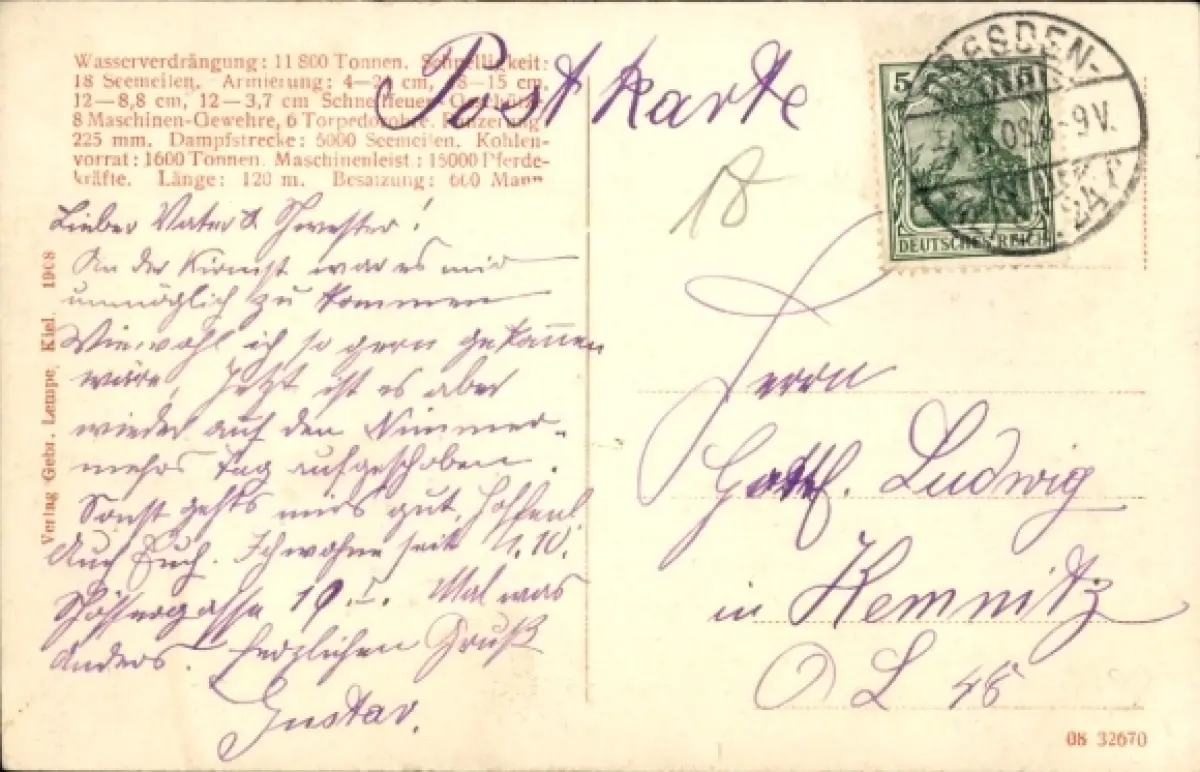 Wasserverdrängung: 11 800 Tonnen. Schnelligkeit:
18 Seemeilen. Armierung: 4—24 cm, 18—15 cm,
12—8,8 cm, 12—3,7 cm Schnellfeuer-Geschütze
8 Maschinen-Gewehre, 6 Torpedorohre. Panzerung:
225 mm. Dampfstrecke: 5000 Seemeilen. Kohlen-
vorrat: 1600 Tonnen. Maschinenleist.: 15000 Pferde-
kräfte. Länge: 120 m. Besatzung: 660 Mann
Postkarte
Verlag Gebr. Lempe, Kiel. 1908
Lieber Vater & Schwester!
An der Kirmest war es mir
unmöglich zu kommen
Wiewohl ich so gern gekommen
wäre. Jetzt ist es aber
wieder auf den Nimmer-
mehrs Tag aufgeschoben.
Sonst gehts mirs gut, hoffentl.
Auch Euch. Ich wohne seit 1.10.
Schössergasse 19 I. Mal was
Anders. Herzlichen Gruß
Gustav.
18
5
DEUTSCHES REICH
DRESDEN-
08.8-9V.
Herrn
Gottf. Ludwig
in Kemnitz
O L 48
08 32670